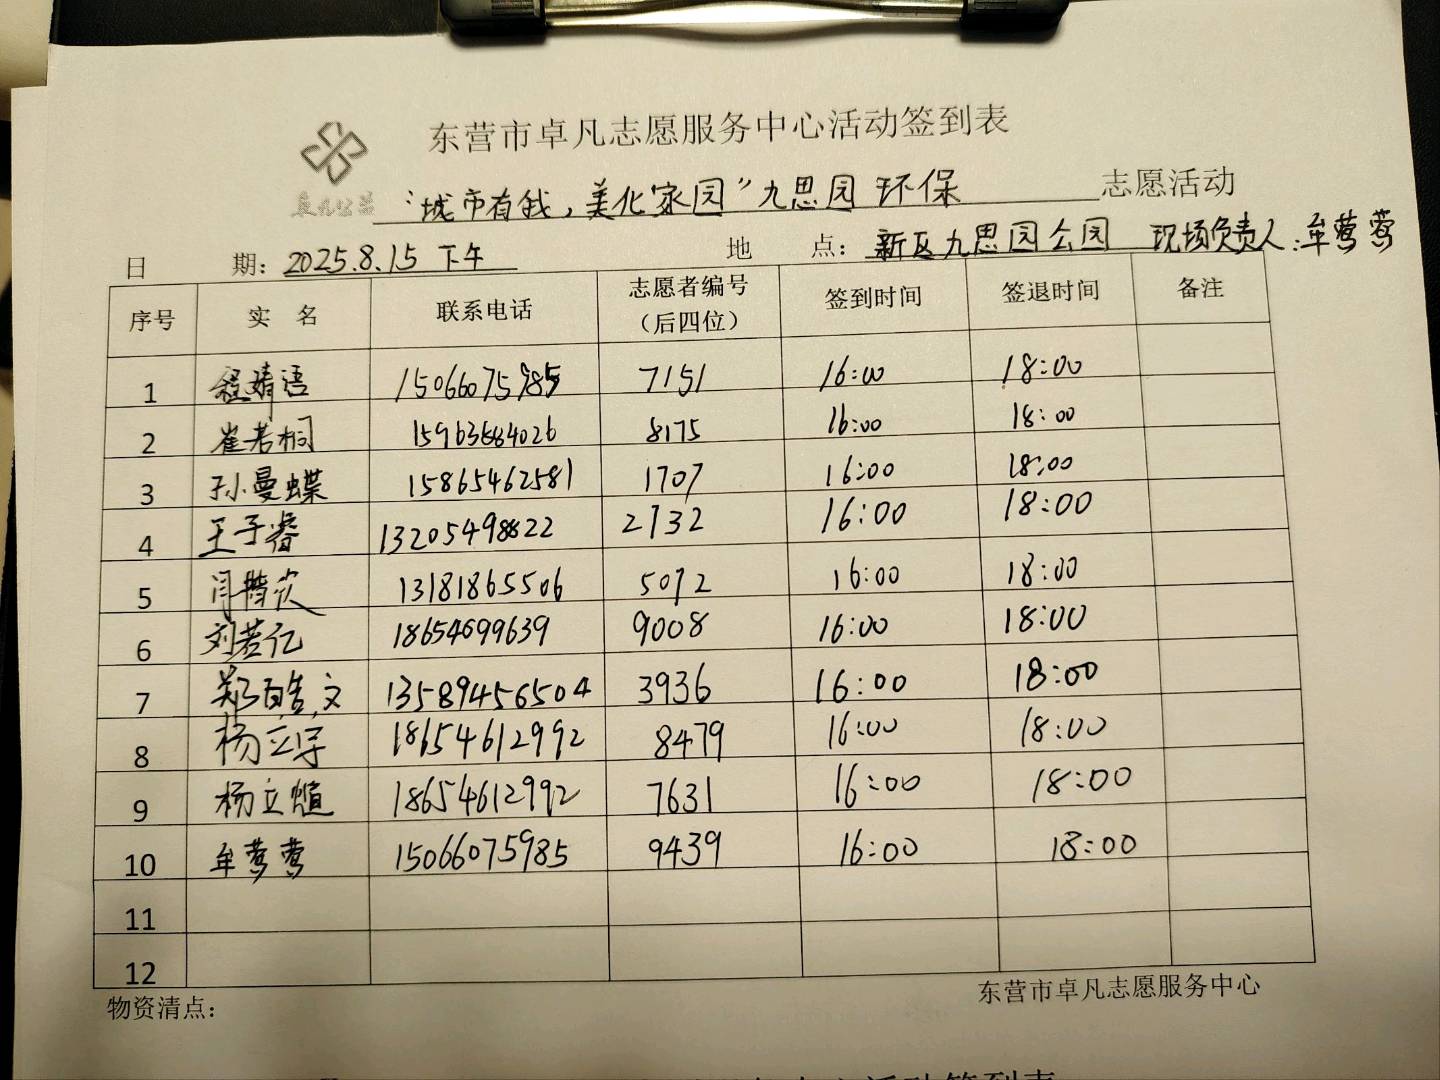 东营市卓凡志愿服务中心活动签到表
卓凡公益
“城市有我，美化家园”九思园 环保 志愿活动
日 期：2025.8.15 下午 地 点：新区九思园公园 现场负责人：牟莺莺
序号 实 名 联系电话 志愿者编号（后四位） 签到时间 签退时间 备注
1 程婧语 15066075985 7151 16:00 18:00
2 崔若桐 15963684026 8175 16:00 18:00
3 孙曼蝶 15865462581 1707 16:00 18:00
4 王子睿 13205498822 2732 16:00 18:00
5 13181865506 5072 16:00 18:00
6 刘若仁 18654699639 9008 16:00 18:00
7 郑皓文 13589456504 3936 16:00 18:00
8 杨立孚 18654612992 8479 16:00 18:00
9 杨立煊 18654612992 7631 16:00 18:00
10 牟莺莺 15066075985 9439 16:00 18:00
11
12
物资清点： 东营市卓凡志愿服务中心